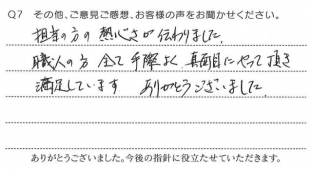 Q7 その他、ご意見ご感想、お客様の声をお聞かせください。
担当の方の 熱心さが 伝わりました。
職人の方 全て 手際よく 真面目に やって 頂き
満足しています ありがとうございました。
ありがとうございました。今後の指針に役立たせていただきます。